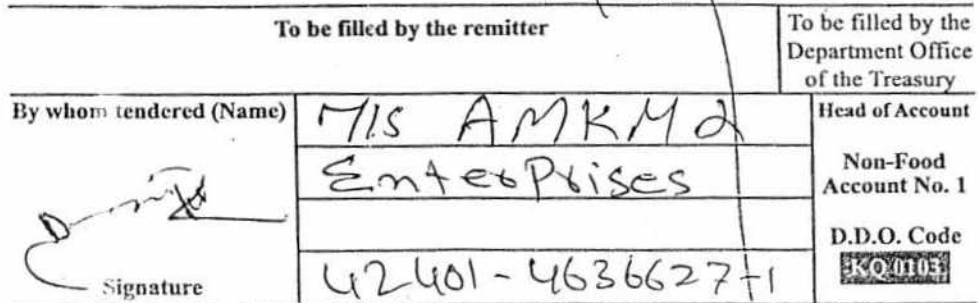 To be filled by the remitter
To be filled by the
Department Office
of the Treasury
By whom tendered (Name)
M/S AMKMd
Enterprises
42401-4636627-1
Signature
Head of Account
Non-Food
Account No. 1
D.D.O. Code
KQ 0103